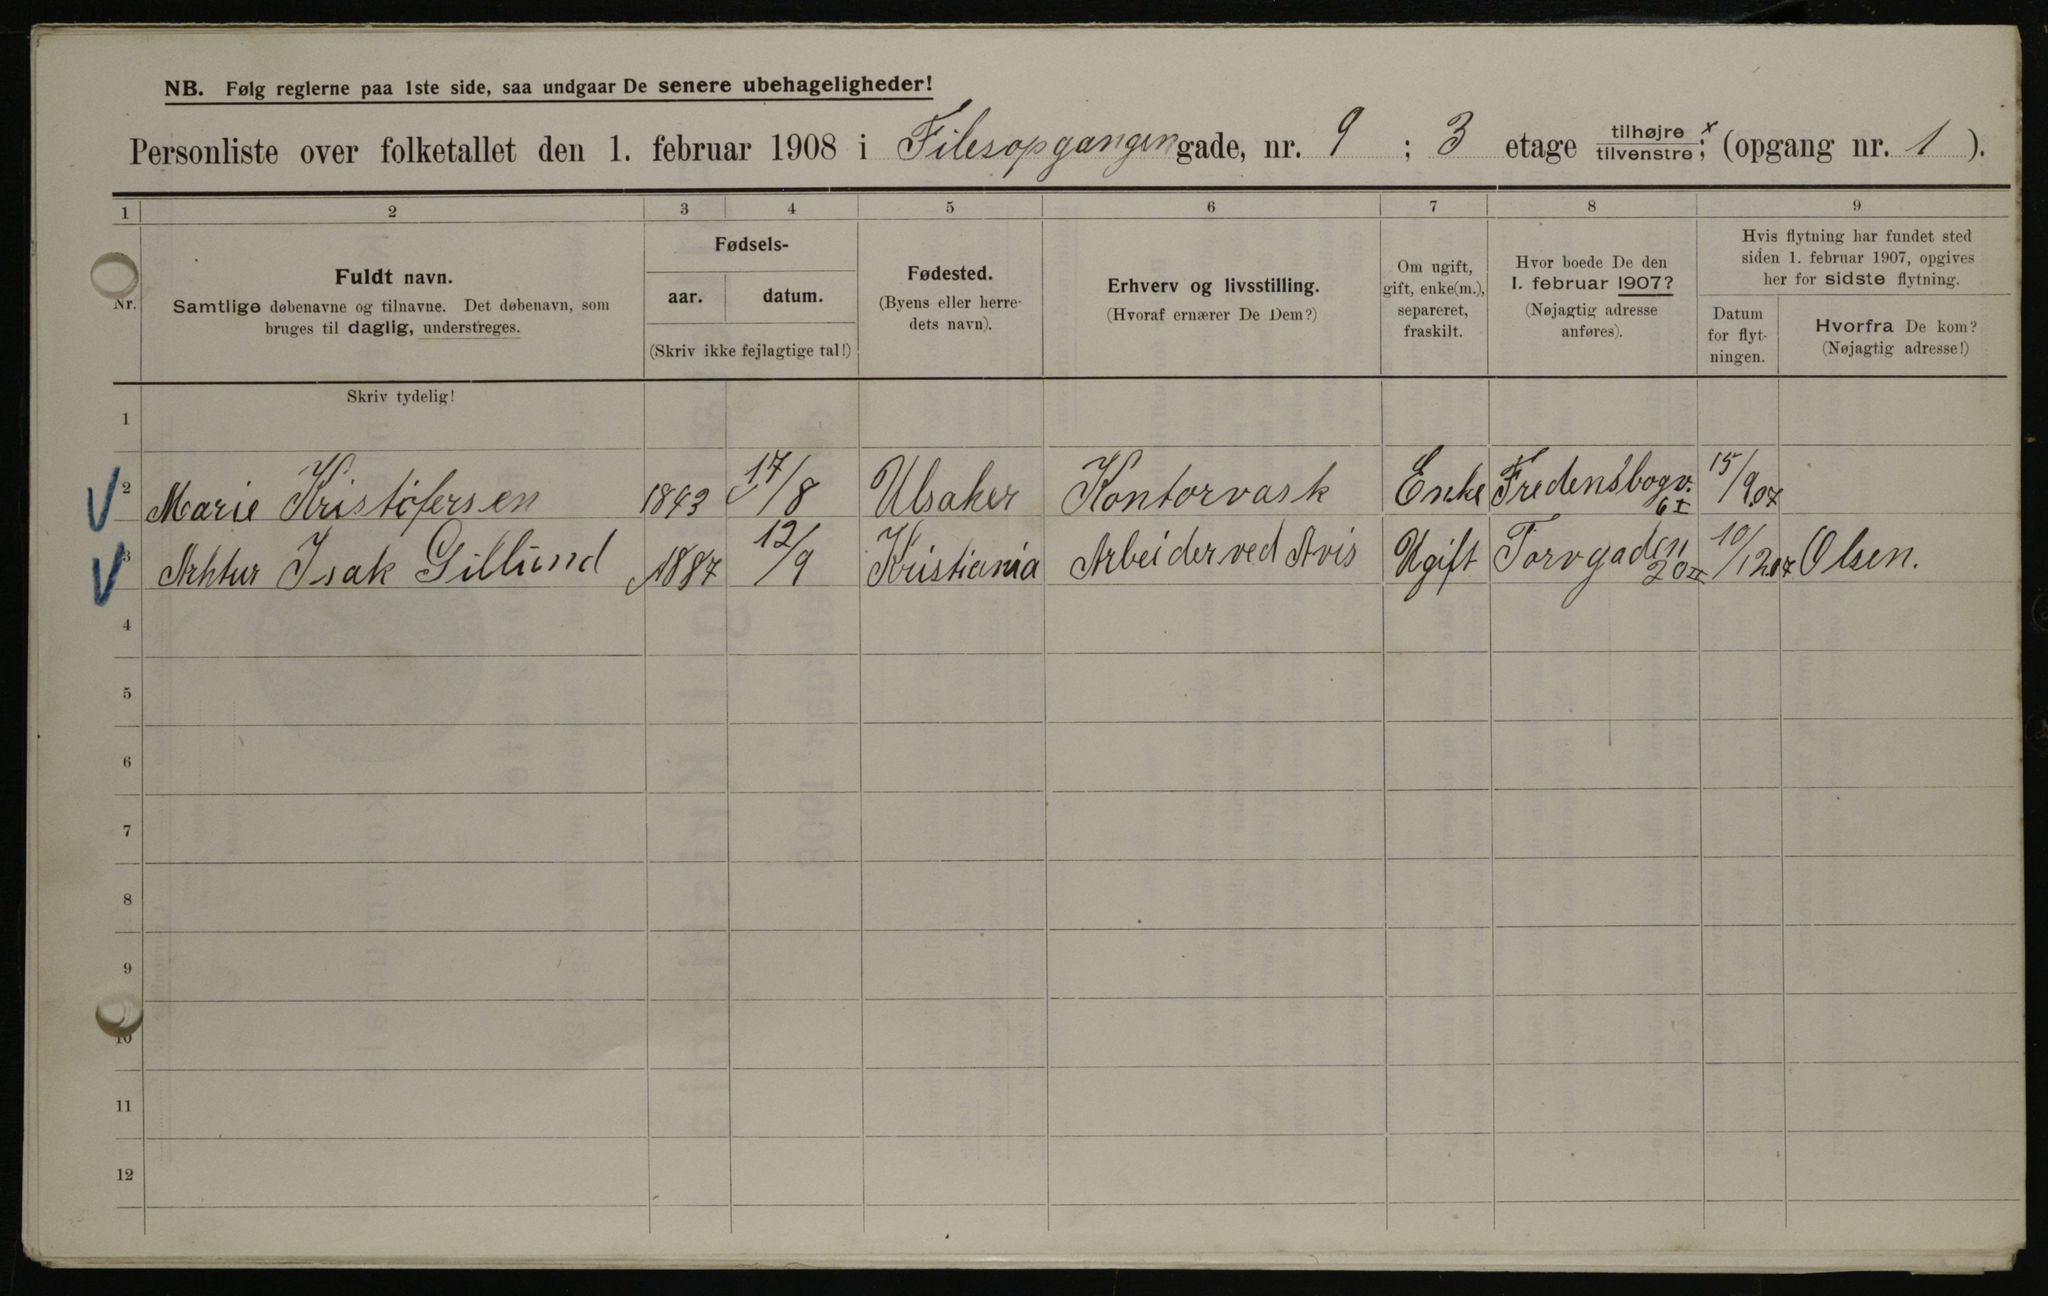 NB. Følg reglerne paa 1ste side, saa undgaar De senere ubehageligheder!
Personliste over folketallet den 1. februar 1908 i Filesopgangen gade, nr. 9 ; 3 etage tilhøjre x / tilvenstre; (opgang nr. 1 ).
1 2 3 4 5 6 7 8 9
Nr.
Fuldt navn.
Samtlige døbenavne og tilnavne. Det døbenavn, som
bruges til daglig, understreges.
Skriv tydelig!
Fødsels-
aar. datum.
(Skriv ikke fejlagtige tal!)
Fødested.
(Byens eller herre-
dets navn).
Erhverv og livsstilling.
(Hvoraf ernærer De Dem?)
Om ugift,
gift, enke(m.),
separeret,
fraskilt.
Hvor boede De den
1. februar 1907?
(Nøjagtig adresse
anføres).
Hvis flytning har fundet sted
siden 1. februar 1907, opgives
her for sidste flytning.
Datum
for flyt-
ningen.
Hvorfra De kom?
(Nøjagtig adresse!)
1
2 Marie Kristofersen 1843 17/8 Ulsaker Kontorvask Enke Fredensbogv. 6 I 15/9 07
3 Arhtur Isak Gillund 1887 12/9 Kristiania Arbeider ved Avis Ugift Torvgaden 20 II 10/12 07 Olsen.
4
5
6
7
8
9
10
11
12